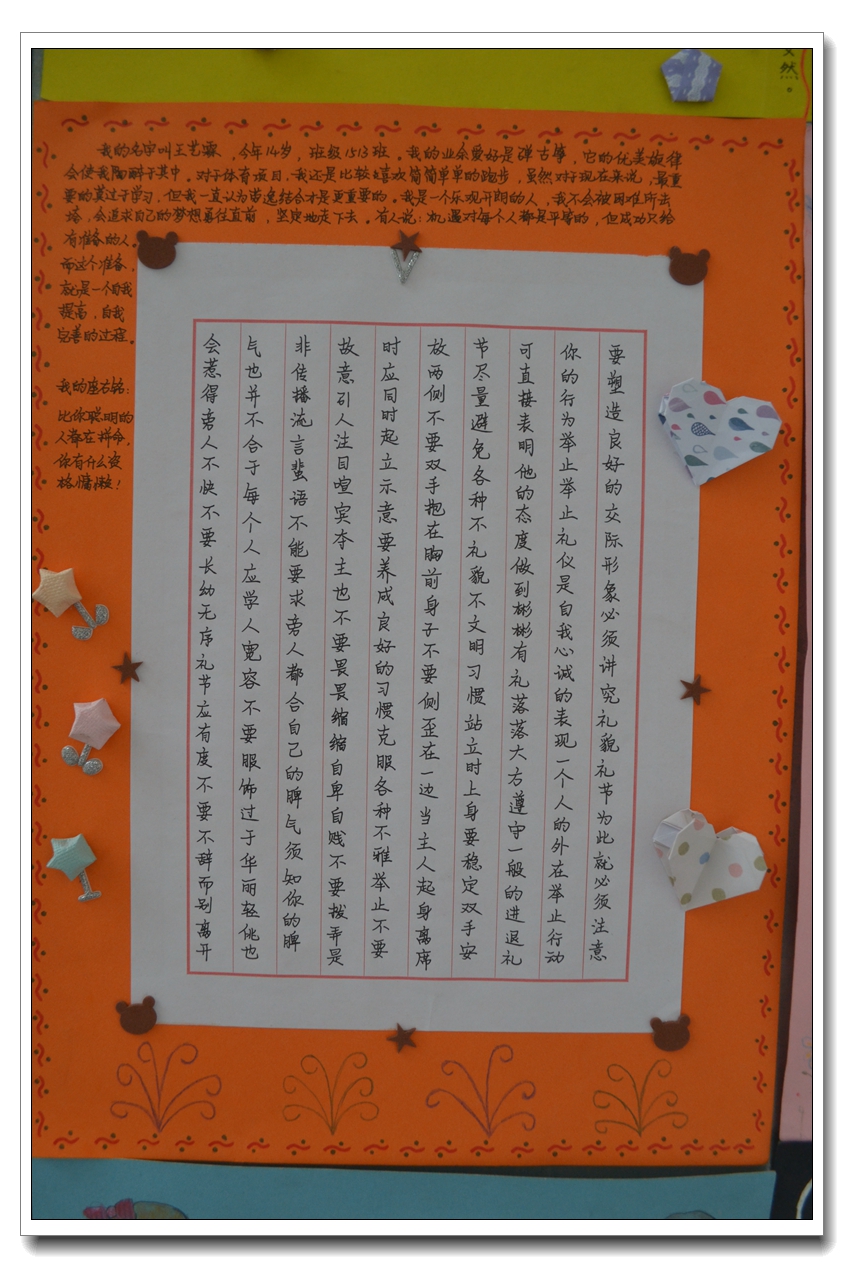 然。
我的名字叫王艺霖，今年14岁，班级1513班。我的业余爱好是弹古筝，它的优美旋律
会使我陶醉于其中。对于体育项目，我还是比较喜欢简简单单的跑步，虽然对于现在来说，最重
要的莫过于学习，但我一直认为劳逸结合才是更重要的。我是一个乐观开朗的人，我不会被困难所击
塔，会追求自己的梦想勇往直前，坚定地走下去。有人说：机遇对每个人都是平等的，但成功只给
有准备的人。
而这个准备，
就是一个自我
提高，自我
完善的过程。
我的座右铭：
比你聪明的
人都在拼命，
你有什么资
格慵懒！
要塑造良好的交际形象必须讲究礼貌礼节为此就必须注意
你的行为举止举止礼仪是自我心诚的表现一个人的外在举止行动
可直接表明他的态度做到彬彬有礼落落大方遵守一般的进退礼
节尽量避免各种不礼貌不文明习惯站立时上身要稳定双手安
放两侧不要双手抱在胸前身子不要侧歪在一边当主人起身离席
时应同时起立示意要养成良好的习惯克服各种不雅举止不要
故意引人注目喧宾夺主也不要畏畏缩缩自卑自贱不要拨弄是
非传播流言蜚语不能要求旁人都合自己的脾气须知你的脾
气也并不合于每个人应学人宽容不要服饰过于华丽轻佻也
会惹得旁人不快不要长幼无序礼节应有度不要不辞而别离开